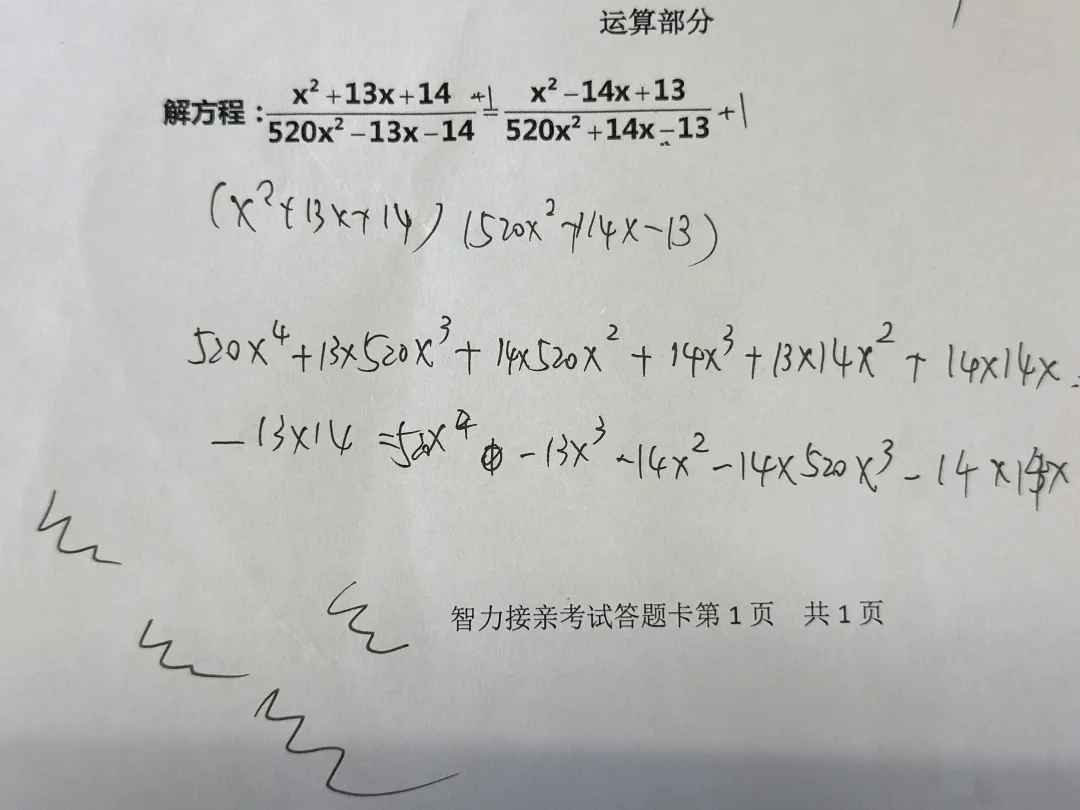 运算部分
解方程：(x²+13x+14)/(520x²-13x-14) +1 = (x²-14x+13)/(520x²+14x-13) +1
(x²+13x+14)(520x²+14x-13)
520x⁴+13x520x³+14x520x²+14x³+13x14x²+14x14x
-13x14=520x⁴-13x³-14x²-14x520x³-14x
智力接亲考试答题卡第1页 共1页